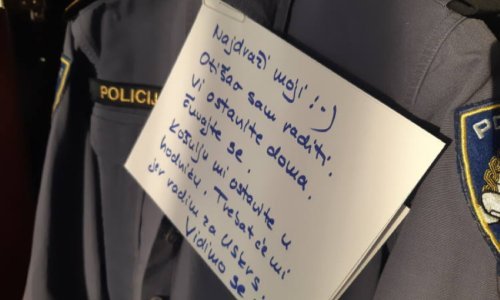 Najdraži moji! :-)
Otišao sam raditi.
Vi ostanite doma.
Čuvajte se.
Košulju mi ostavite u
hodniku. Trebat će mi
jer radim za Uskrs
Vidimo se!
POLICIJ
PO